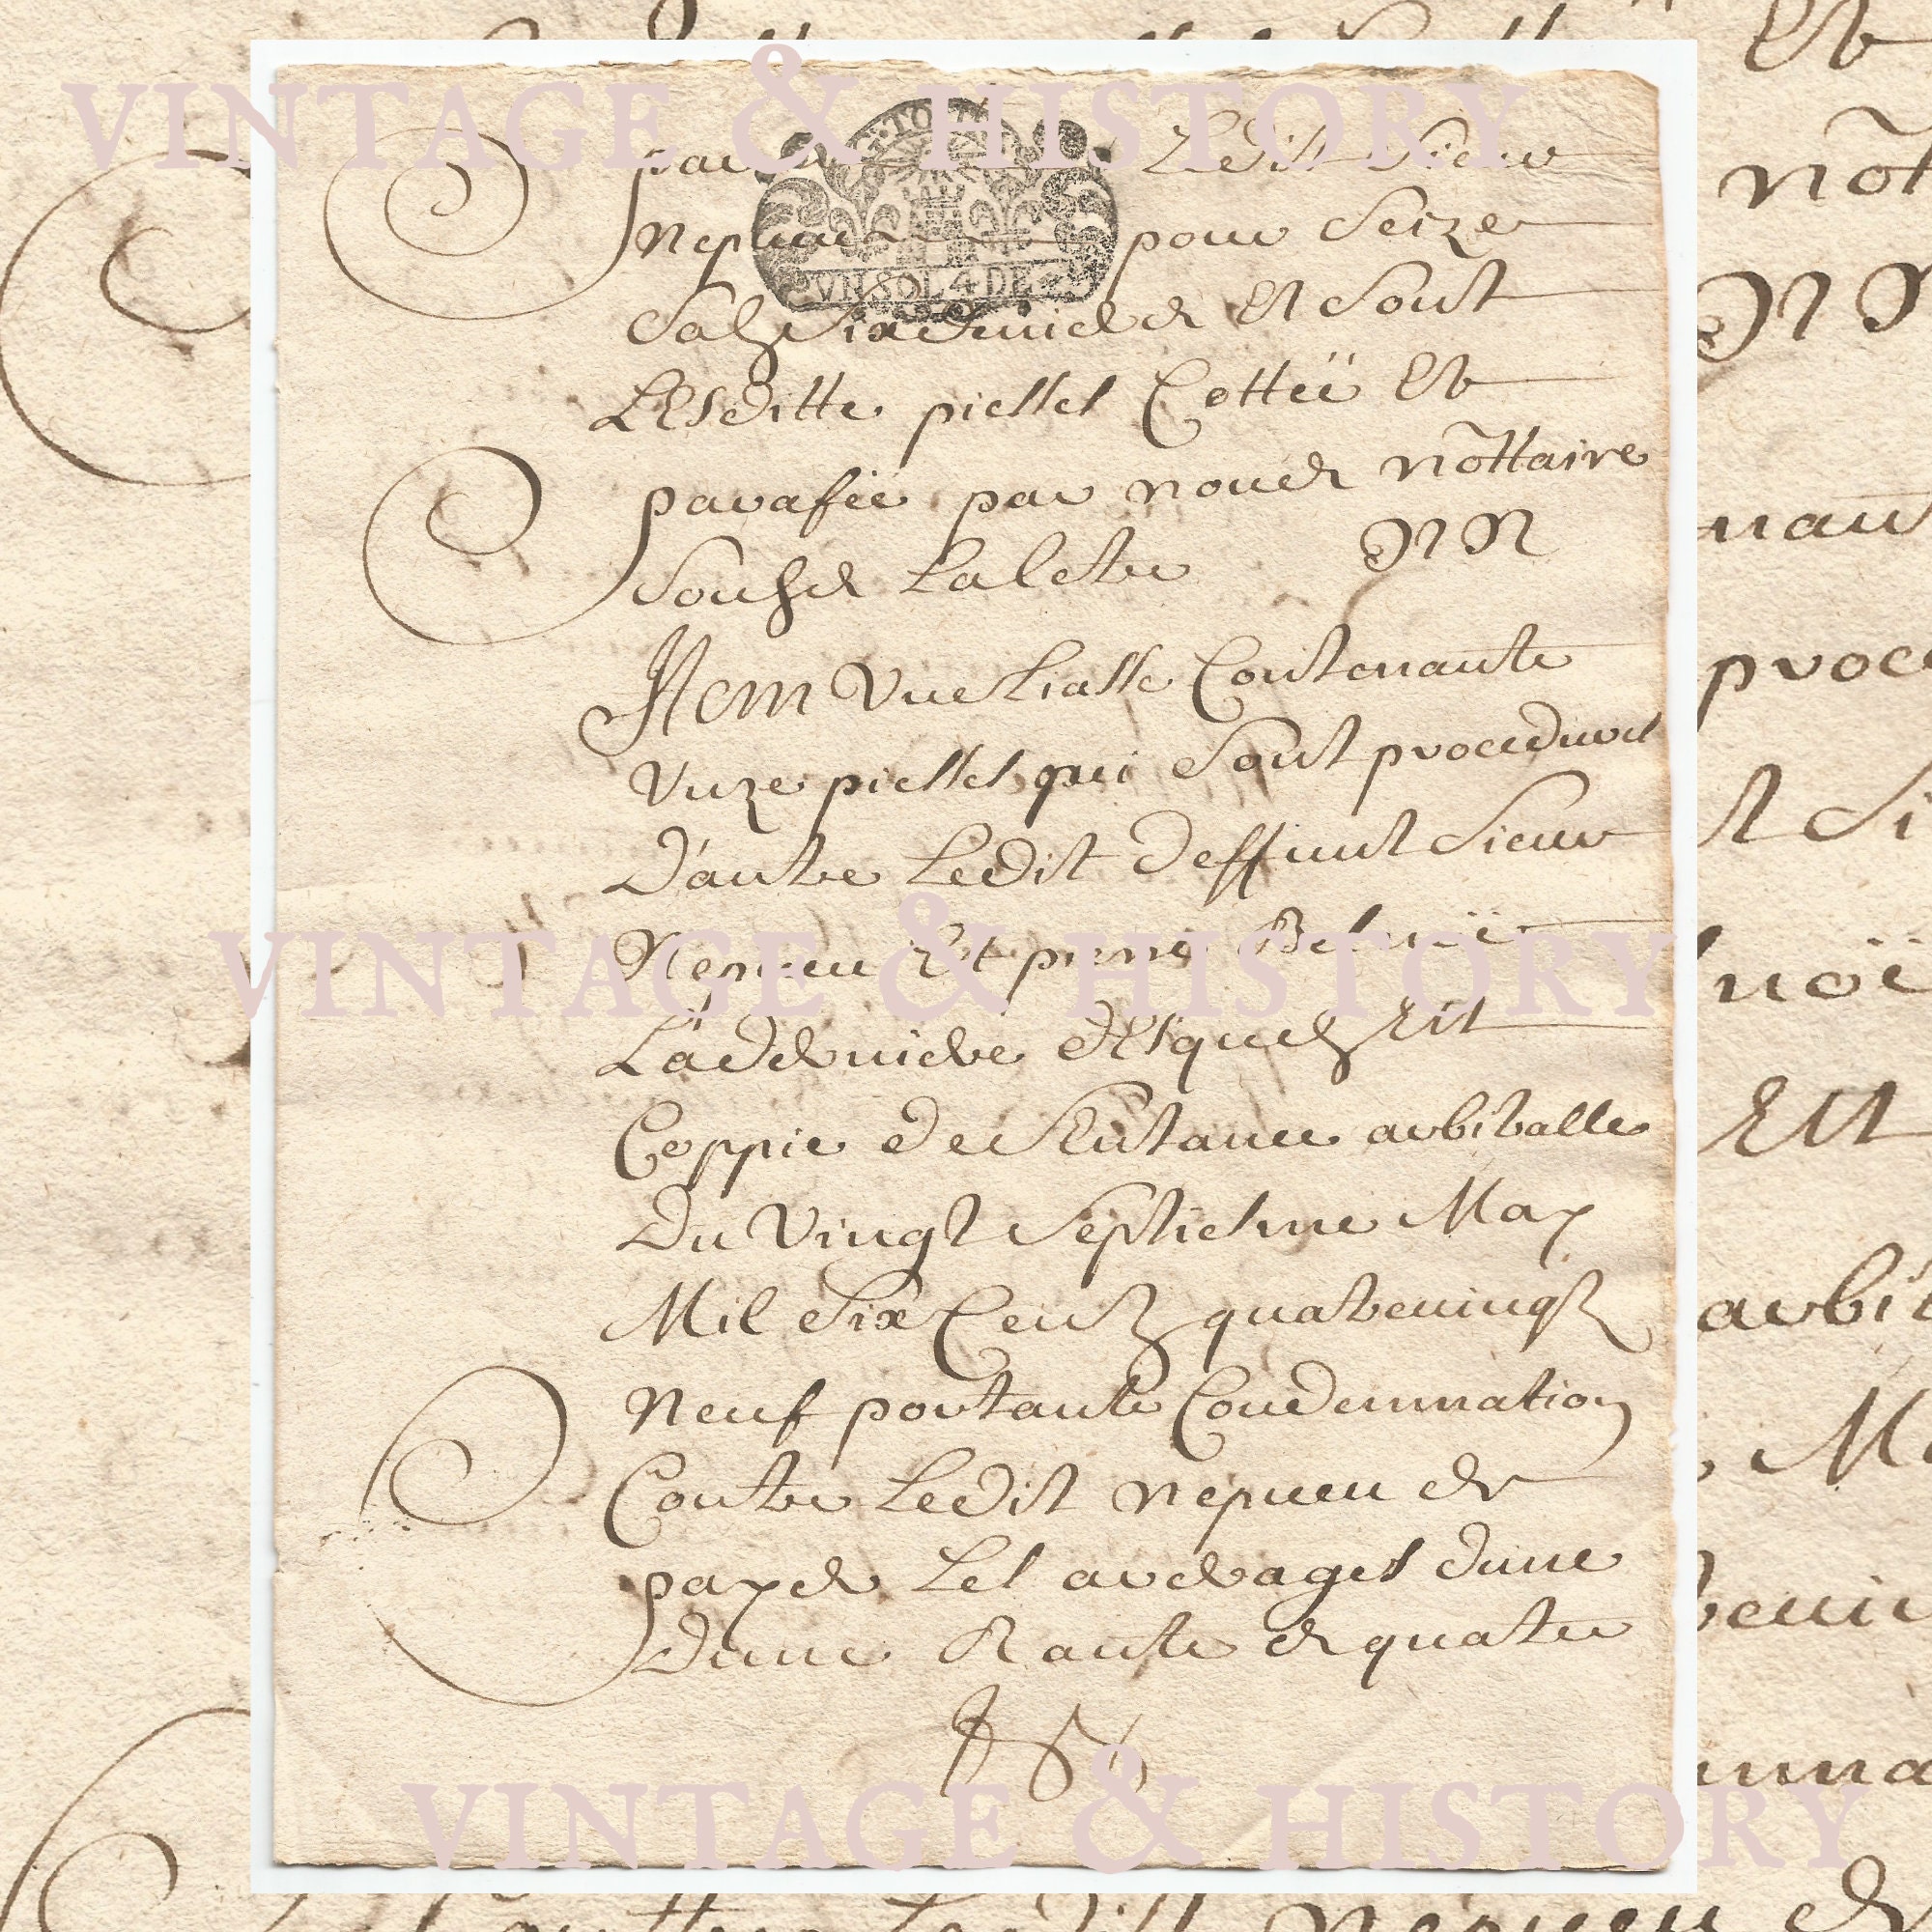 VINTAGE & HISTORY
par Ledit Sieur
nepueu pour Seize
Solz Six deniers Et Sont
LEsditte piesses Cottéé Et
paraféé par nous nottaire
Soussez La lettre NN
Item Vne Liasse Contenante
Vnze piesses qui Sont procedures
D'antre Ledit Deffunt Sieur
VINTAGE & HISTORY
Nepueu Et pierre Belnoë
La derniere dEsquelz Est
Coppie de Sentance arbitralle
Du Vingt Septiesme May
Mil Six Centz quatreuingtz
Neuf portante Condemnation
Contre Ledit nepueu de
payer Les arerages dune
Dune Rante de quatre
VINTAGE & HISTORY
VN SOL 4 DE